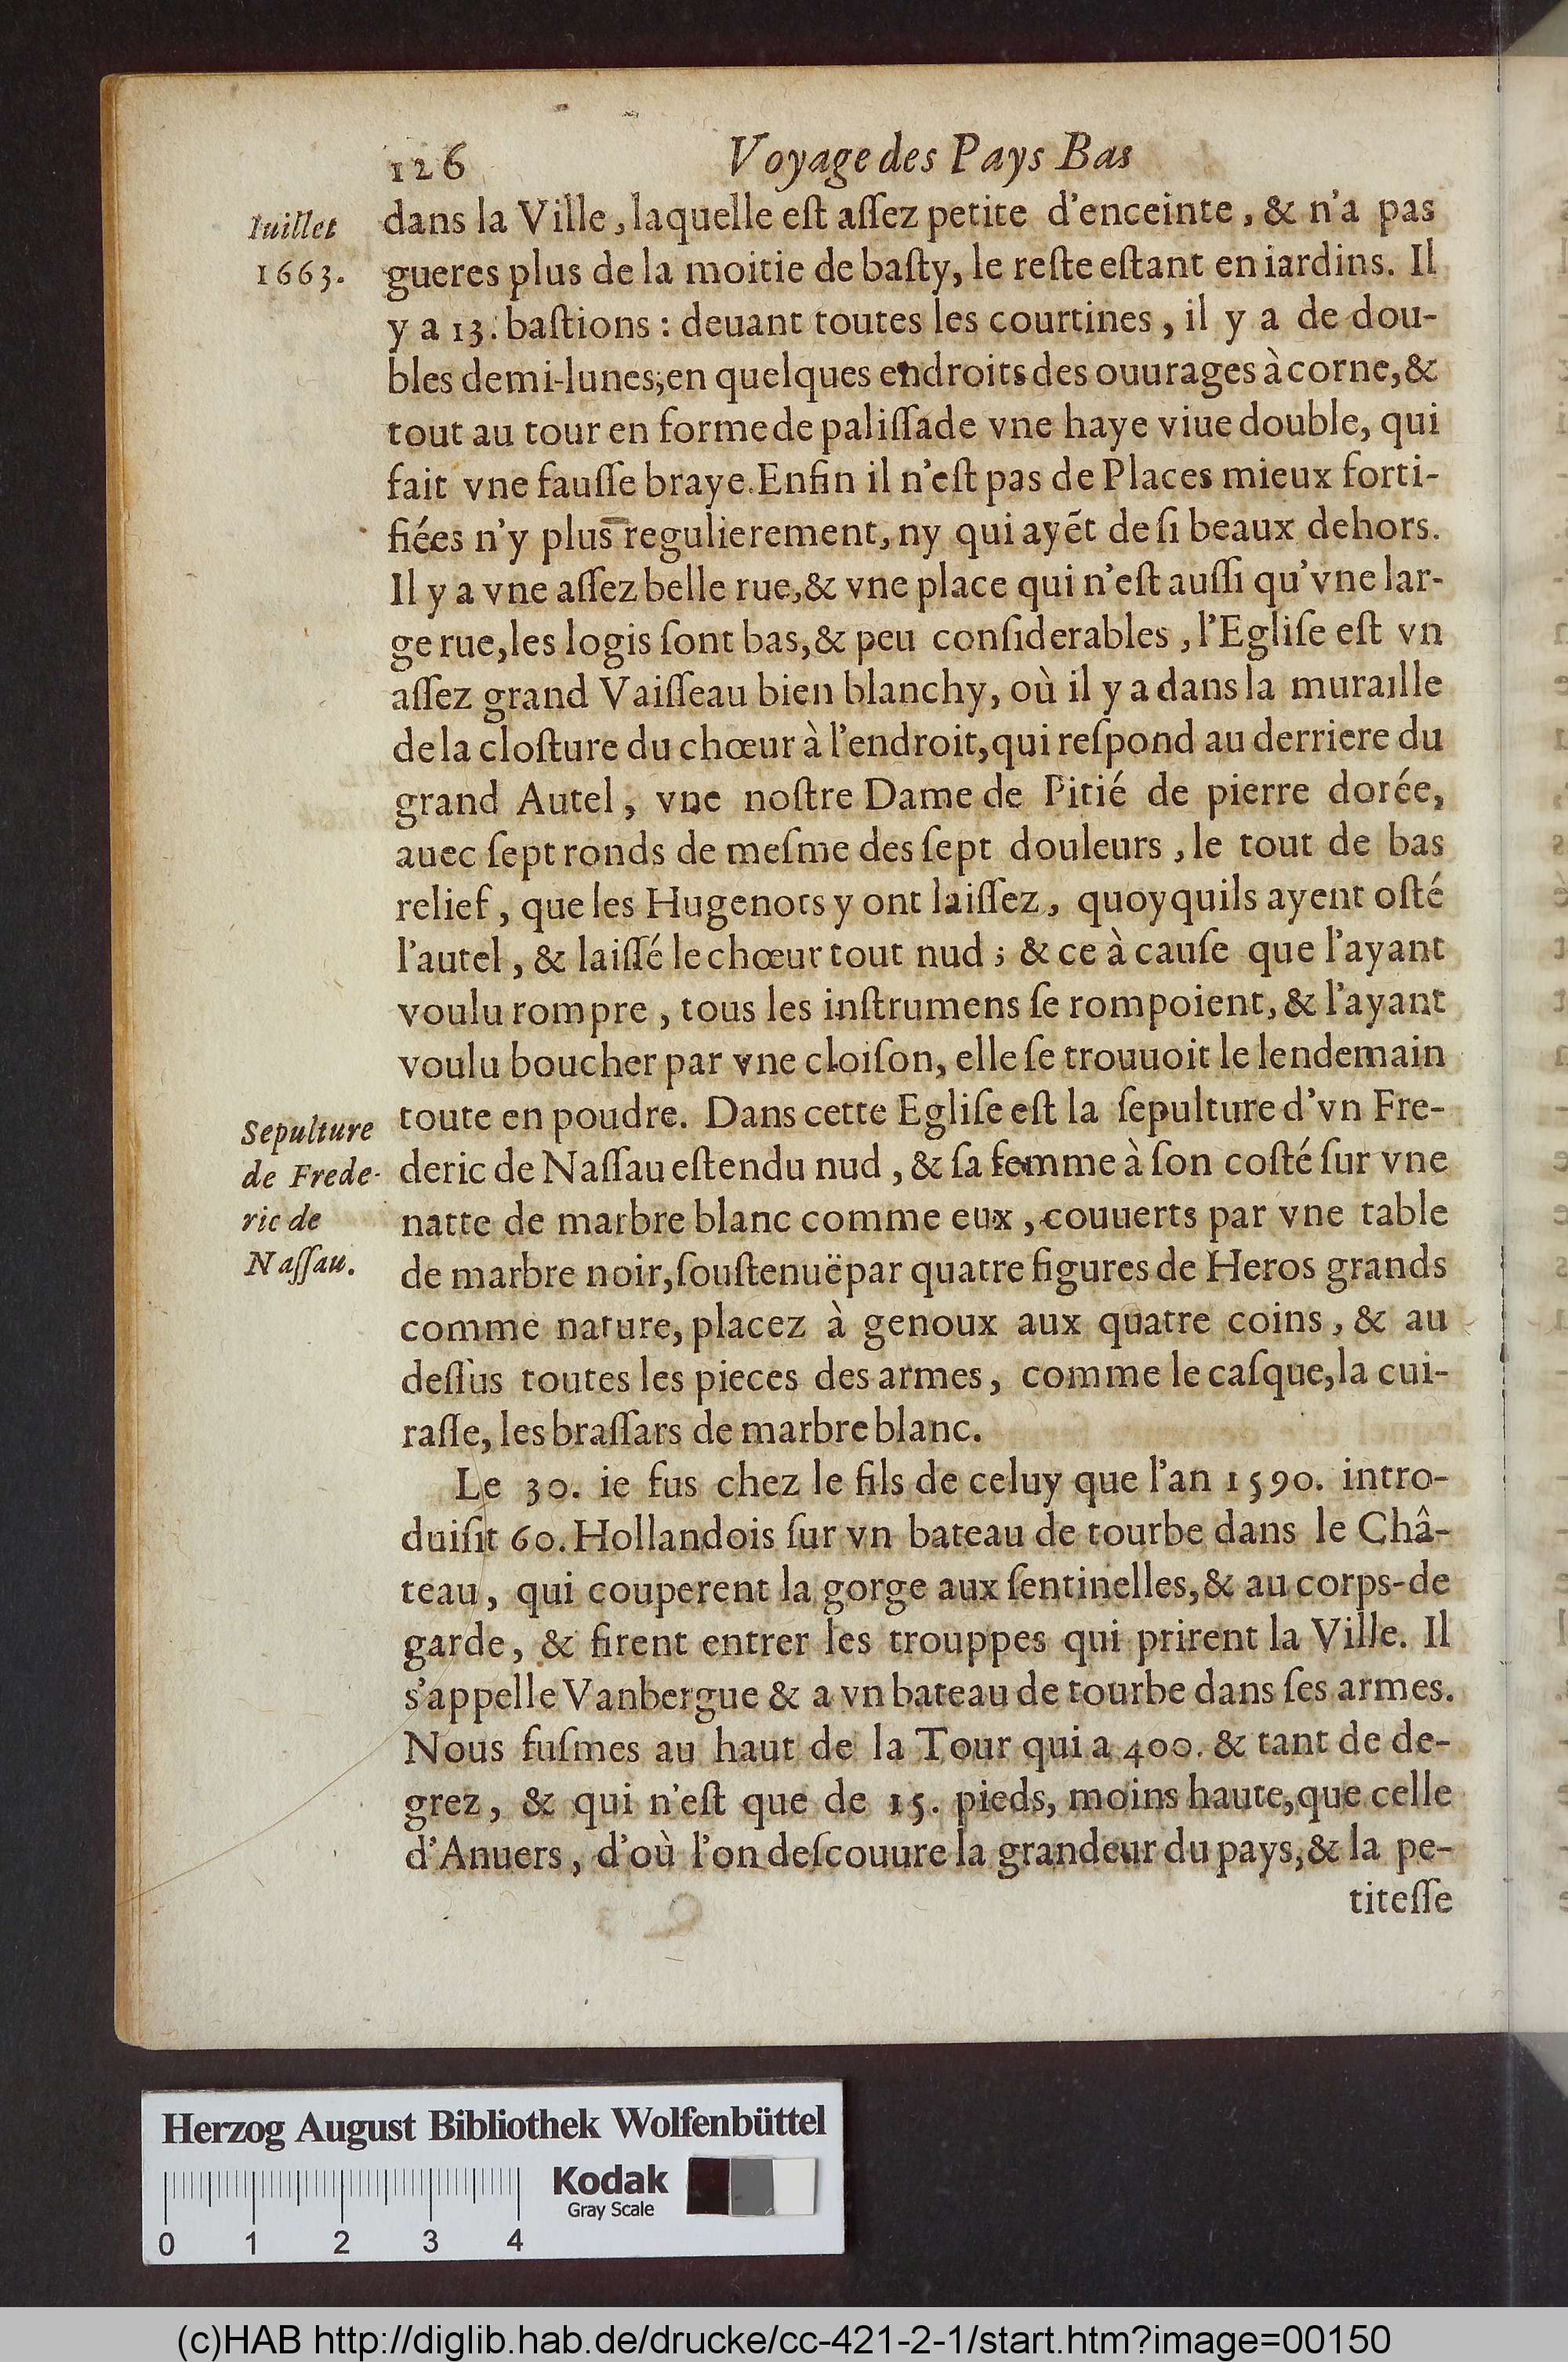 126 Voyage des Pays Bas
Iuillet
1663.
dans la Ville, laquelle eſt aſſez petite d'enceinte, & n'a pas
gueres plus de la moitie de baſty, le reſte eſtant en iardins. Il
y a 13. baſtions : deuant toutes les courtines, il y a de dou-
bles demi-lunes; en quelques endroits des ouurages à corne, &
tout au tour en forme de paliſſade vne haye viue double, qui
fait vne fauſſe braye. Enfin il n'eſt pas de Places mieux forti-
fiées n'y plus regulierement, ny qui ayẽt de ſi beaux dehors.
Il y a vne aſſez belle rue, & vne place qui n'eſt auſſi qu'vne lar-
ge rue, les logis ſont bas, & peu conſiderables, l'Egliſe eſt vn
aſſez grand Vaiſſeau bien blanchy, où il y a dans la muraille
de la cloſture du chœur à l'endroit, qui reſpond au derriere du
grand Autel, vne noſtre Dame de Pitié de pierre dorée,
auec ſept ronds de meſme des ſept douleurs, le tout de bas
relief, que les Hugenots y ont laiſſez, quoyquils ayent oſté
l'autel, & laiſſé le chœur tout nud ; & ce à cauſe que l'ayant
voulu rompre, tous les inſtrumens ſe rompoient, & l'ayant
voulu boucher par vne cloiſon, elle ſe trouuoit le lendemain
toute en poudre. Dans cette Egliſe eſt la ſepulture d'vn Fre-
deric de Naſſau eſtendu nud, & ſa femme à ſon coſté ſur vne
natte de marbre blanc comme eux, couuerts par vne table
de marbre noir, ſouſtenuë par quatre figures de Heros grands
comme nature, placez à genoux aux quatre coins, & au
deſſus toutes les pieces des armes, comme le caſque, la cui-
raſſe, les braſſars de marbre blanc.
Sepulture
de Frede-
ric de
Naſſau.
Le 30. ie fus chez le fils de celuy que l'an 1590. intro-
duiſit 60. Hollandois ſur vn bateau de tourbe dans le Châ-
teau, qui couperent la gorge aux ſentinelles, & au corps-de
garde, & firent entrer les trouppes qui prirent la Ville. Il
s'appelle Vanbergue & a vn bateau de tourbe dans ſes armes.
Nous fuſmes au haut de la Tour qui a 400. & tant de de-
grez, & qui n'eſt que de 15. pieds, moins haute, que celle
d'Anuers, d'où l'on deſcouure la grandeur du pays, & la pe-
titeſſe
Herzog August Bibliothek Wolfenbüttel
Kodak
Gray Scale
0 1 2 3 4
(c)HAB http://diglib.hab.de/drucke/cc-421-2-1/start.htm?image=00150